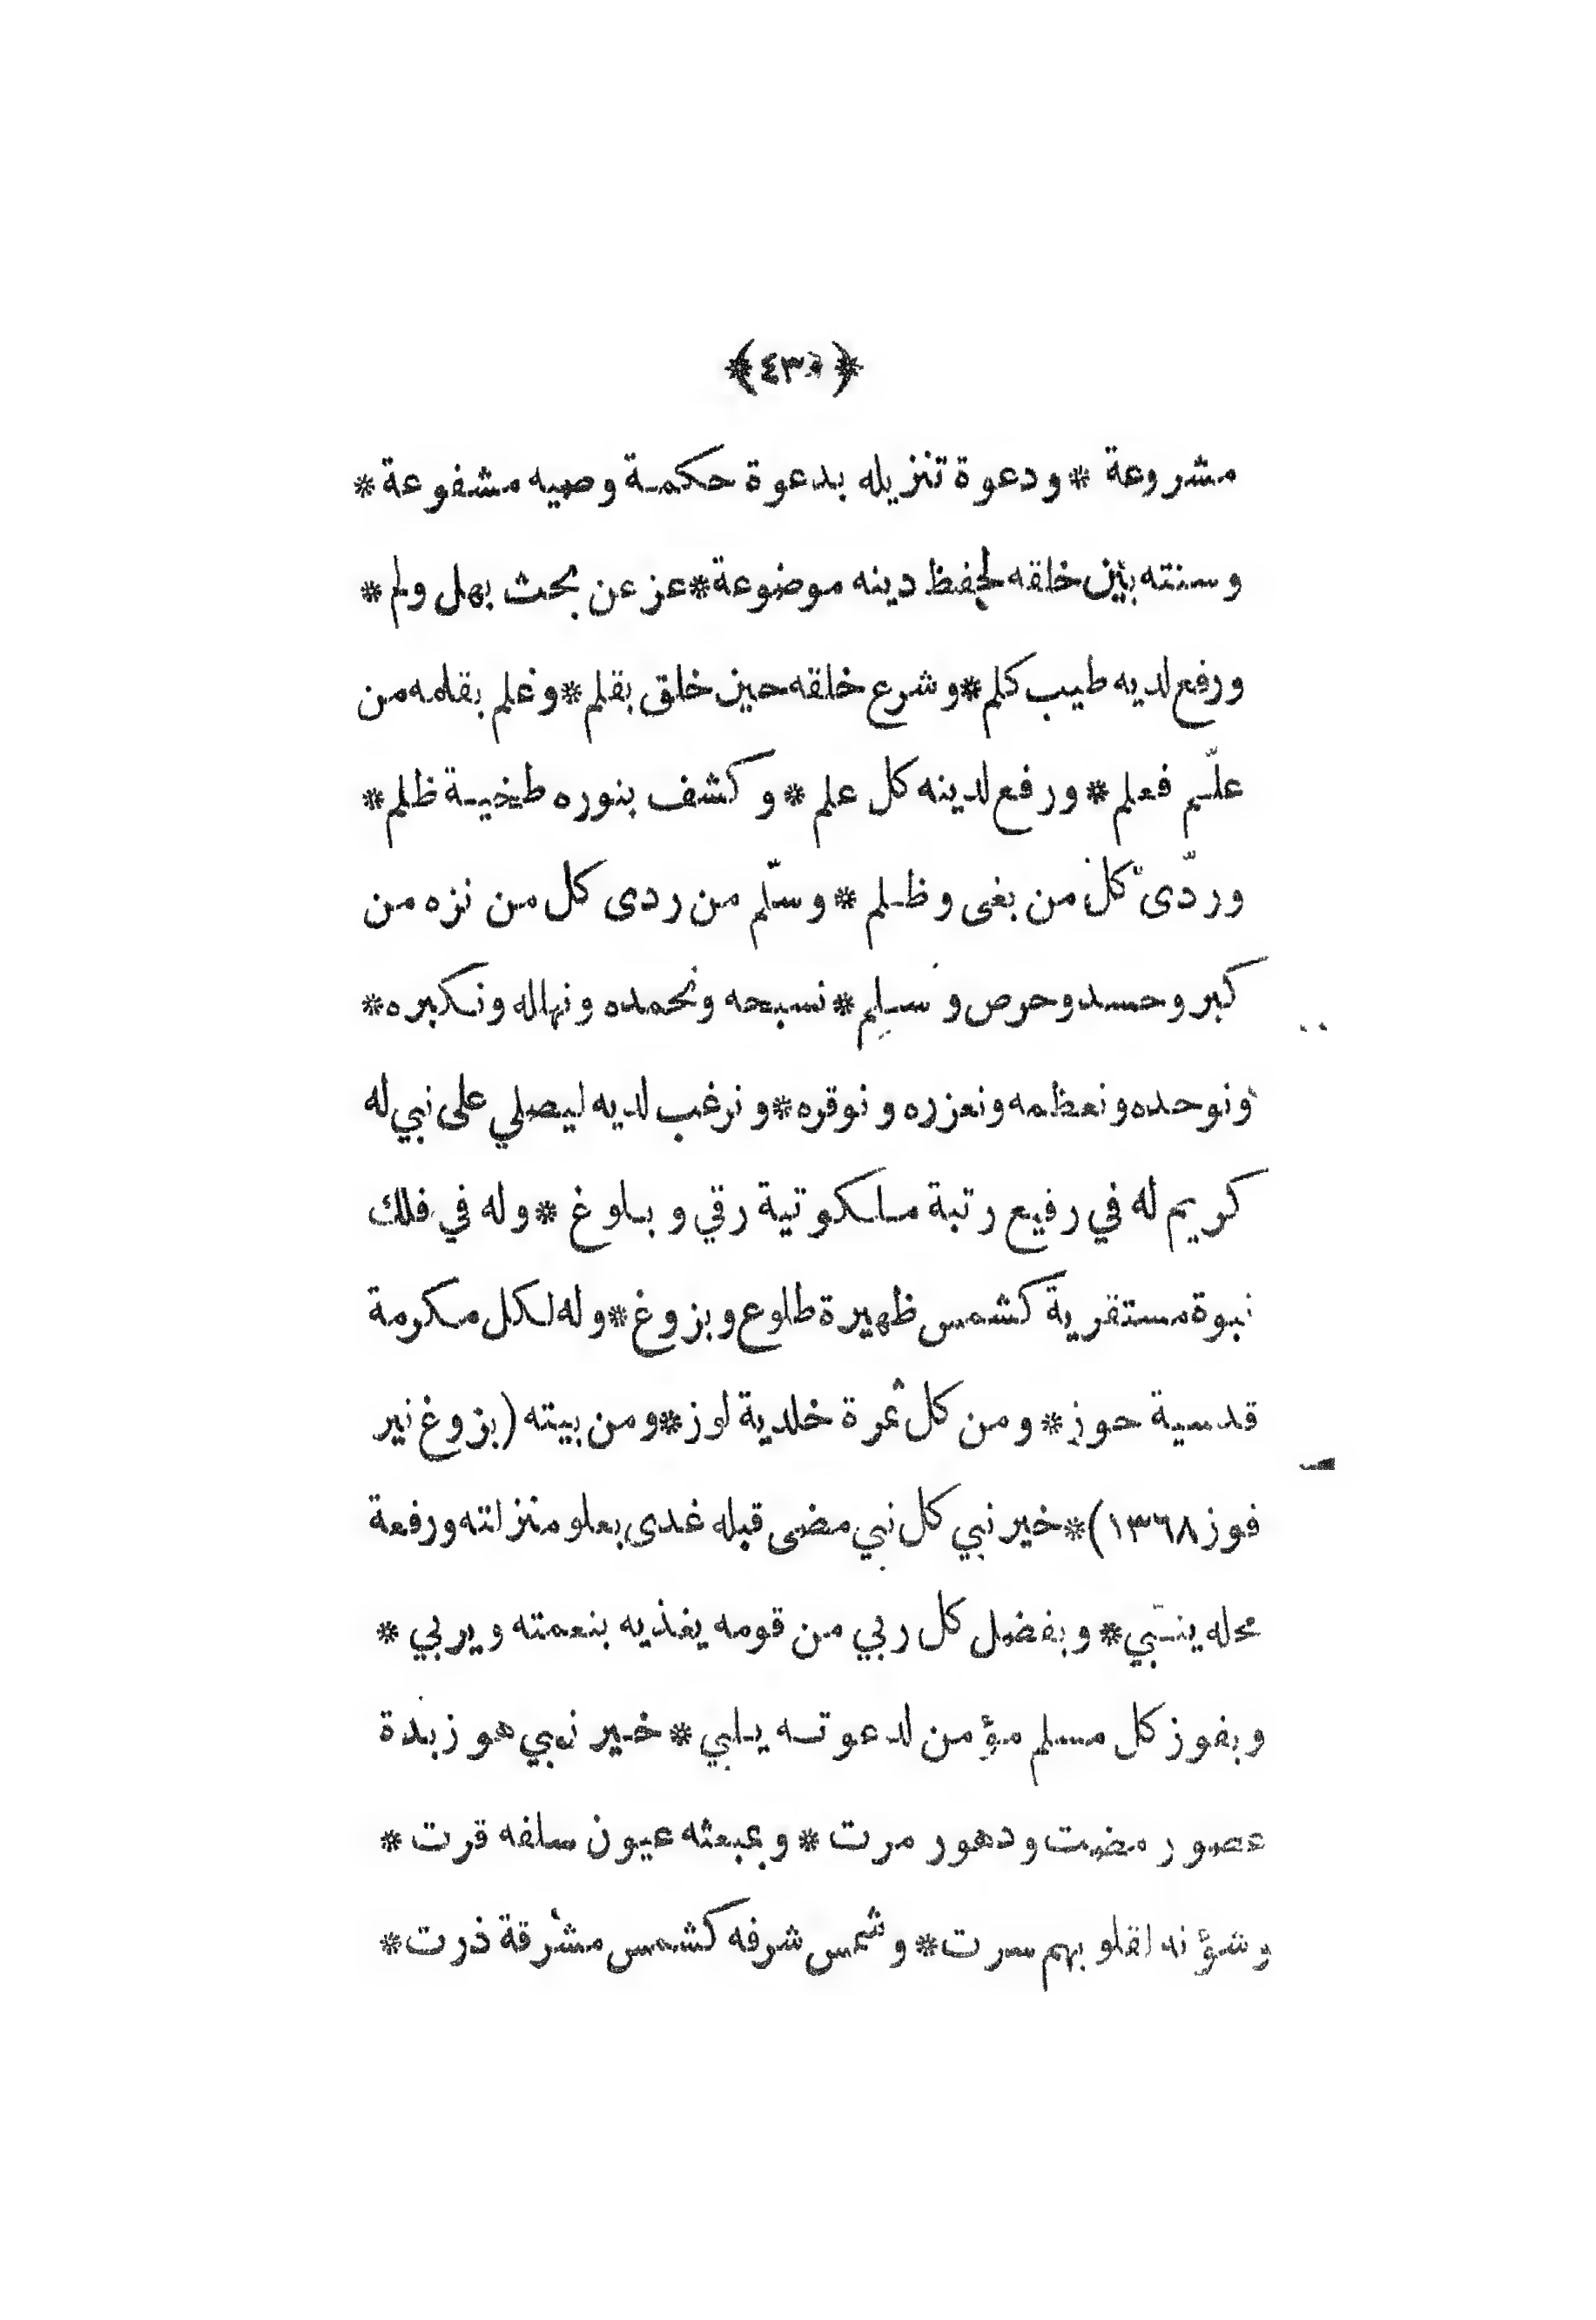 ﴿٤٣٥﴾
مشروعة * ودعوة تنزيله بدعوة حكمة وصيه مشفوعة *
وسنته بين خلقه لحفظ دينه موضوعة * عز عن بحث بهل ولم *
ورفع لديه طيب كلم * وشرع خلقه حين خلق بقلم * وعلم بقلمه من
علّم فعلم * ورفع لدينه كل علم * وكشف بنوره طخية ظلم *
وردّى كل من بغى وظلم * وسلّم من ردى كل من نزه من
كبر وحسد وحرص وسلم * نسبحه ونحمده ونهلله ونكبره *
ونوحده ونعظمه ونعزره ونوقره * ونرغب لديه ليصلي على نبي له
كريم له في رفيع رتبة ملكوتية رقي وبلوغ * وله في فلك
نبوة مستقرية كشمس ظهيرة طلوع وبزوغ * وله لكل مكرمة
قدسية حوز * ومن كل ثمرة خلدية لوز * ومن بيته (بزوغ نير
فوز ١٣٦٨) * خير نبي كل نبي مضى قبله غدى بعلو منزلته ورفعة
محله ينبّي * وبفضل كل ربي من قومه يغذيه بنعمته ويربي *
وبفوز كل مسلم مؤمن لدعوته يلبي * خير نبي هو زبدة
عصور مضت ودهور مرت * وبمبعثه عيون سلفه قرت *
وشؤنه لقلوبهم سرت * وشمس شرفه كشمس مشرقة ذرت *